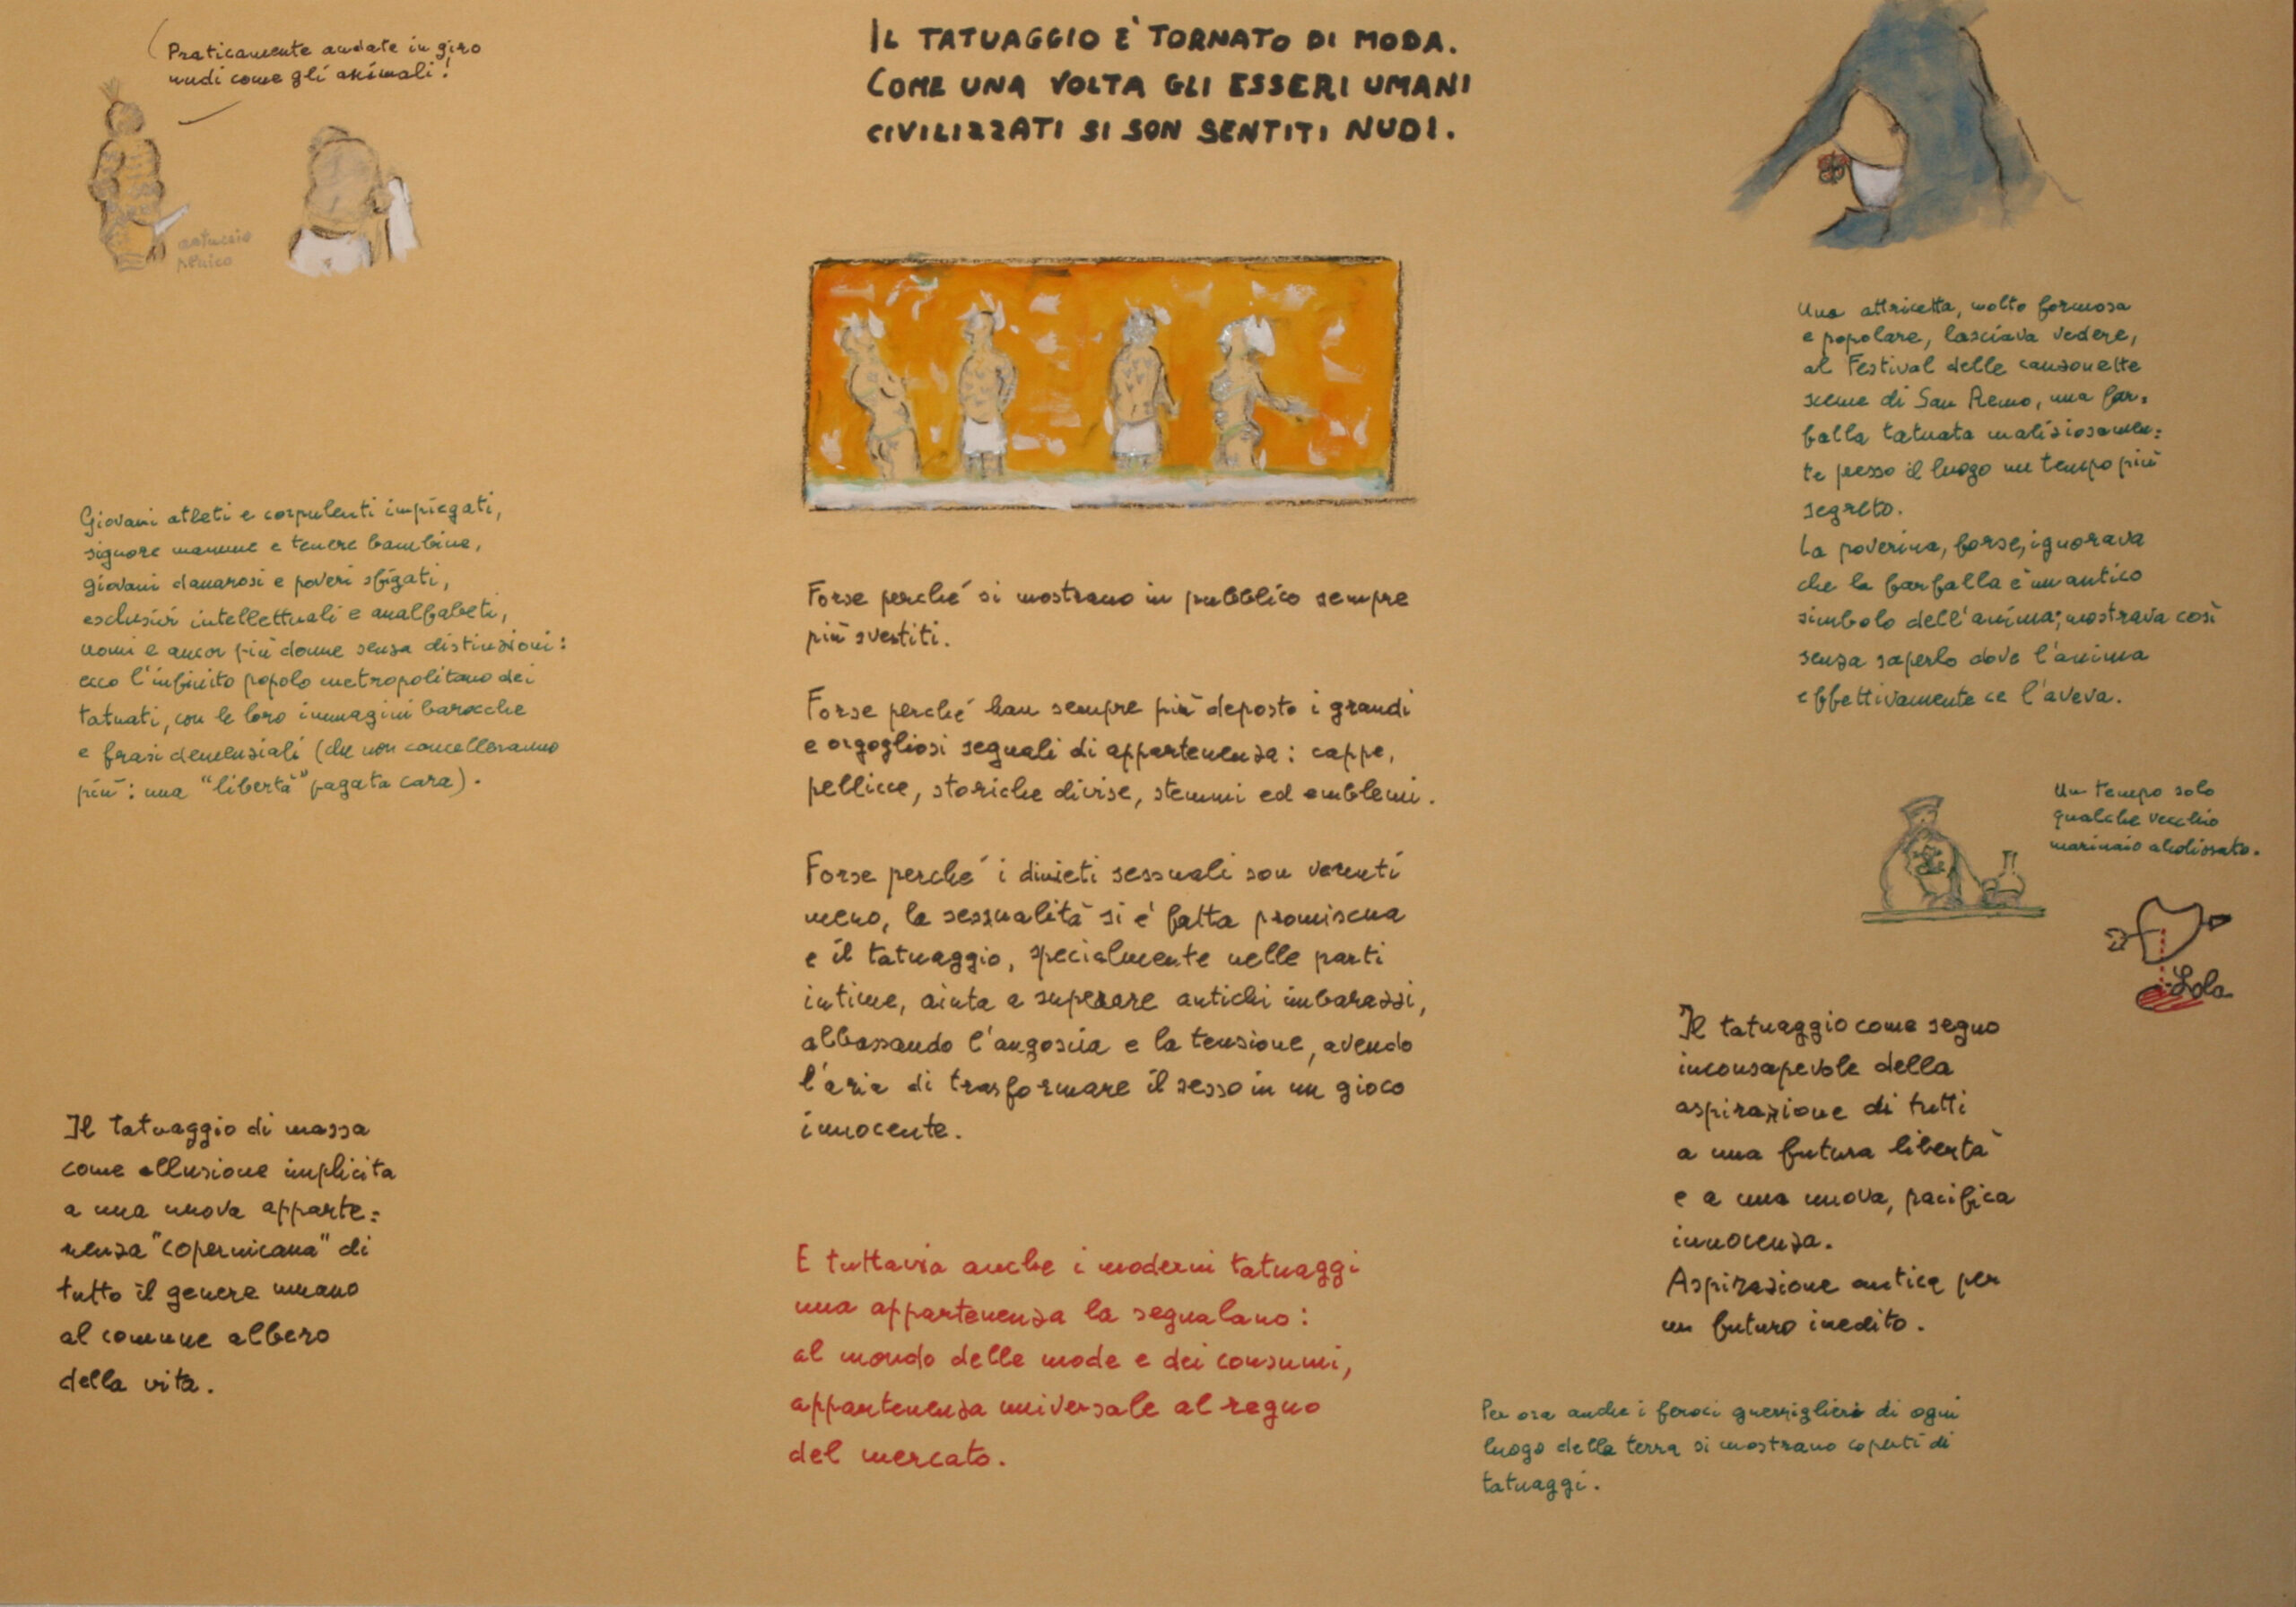 IL TATUAGGIO È TORNATO DI MODA.
COME UNA VOLTA GLI ESSERI UMANI
CIVILIZZATI SI SON SENTITI NUDI.
Praticamente andate in giro
nudi come gli animali!
astuccio
penico
Giovani atleti e corpulenti impiegati,
signore mamme e tenere bambine,
giovani danarosi e poveri sfigati,
esclusivi intellettuali e analfabeti,
uomi e ancor più donne senza distinzioni:
ecco l'infinito popolo metropolitano dei
tatuati, con le loro immagini barocche
e frasi demenziali (che non cancelleranno
più: una "libertà" pagata cara).
Il tatuaggio di massa
come allusione implicita
a una nuova apparte=
nenza "copernicana" di
tutto il genere umano
al comune albero
della vita.
Forse perché si mostrano in pubblico sempre
più svestiti.
Forse perché han sempre più deposto i grandi
e orgogliosi segnali di appartenenza: cappe,
pellicce, storiche divise, stemmi ed emblemi.
Forse perché i divieti sessuali son venuti
meno, la sessualità si è fatta promiscua
e il tatuaggio, specialmente nelle parti
intime, aiuta a superare antichi imbarazzi,
abbassando l'angoscia e la tensione, avendo
l'aria di trasformare il sesso in un gioco
innocente.
E tuttavia anche i moderni tatuaggi
una appartenenza la segnalano:
al mondo delle mode e dei consumi,
appartenenza universale al regno
del mercato.
Una attricetta, molto formosa
e popolare, lasciava vedere,
al Festival delle canzonette
sceme di San Remo, una far=
falla tatuata maliziosamen=
te presso il luogo un tempo più
segreto.
La poverina, forse, ignorava
che la farfalla è un antico
simbolo dell'anima; mostrava così
senza saperlo dove l'anima
effettivamente ce l'aveva.
Un tempo solo
qualche vecchio
marinaio alcolizzato.
Lola
Il tatuaggio come segno
inconsapevole della
aspirazione di tutti
a una futura libertà
e a una nuova, pacifica
innocenza.
Aspirazione antica per
un futuro inedito.
Per ora anche i feroci guerriglieri di ogni
luogo della terra si mostrano coperti di
tatuaggi.